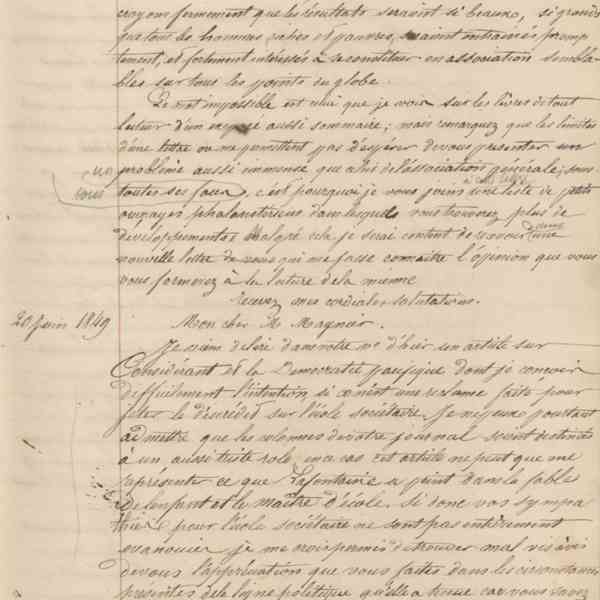 croyons fermement que les résultats seraient si beaux, si grands
que tous les hommes riches et pauvres, seraient entrainés promp
tement, et fortement intéressés à se constituer en association sembla-
bles sur tous les points du globe.
Le mot impossible est celui que je vois sur les lèvres de tout
lecteur d'un exposé aussi sommaire; mais remarquez que les limites
d'une lettre ne me permettent pas d'espérer de vous présenter un
problème aussi immense que celui de l'association générale, sous
toutes ses faces, c'est pourquoi je vous joins une liste de petits
ouvrages phalanstériens dans lesquels vous trouverez plus de
développements Malgré cela je serai content de recevoir une
nouvelle lettre de vous qui me fasse connaître l'opinion que vous
vous formerez à la lecture de la mienne
recevez mes cordiales salutations.
20 juin 1849
Mon cher M.
Je viens de lire dans votre no d'hier un article sur
Considérant et la Démocratie pacifique dont je conçois
difficilement l'intention si ce n'est une réclame faite pour
jeter le discrédit sur l'école sociétaire. Je ne peux pourtant
admettre que les colonnes de votre journal soient destinées
à un aussi triste role en ce cas cet article ne peut que me
représenter ce que Lafontaine a peint dans la fable
de l'enfant et le maître d'école. si donc vos sympa
thies pour l'école sociétaire ne sont pas entièrement
évanouies je me crois permis de trouver mal vis à vis
de vous l'appréciation que vous faites dans les circonstances
présentes de la ligne politique qu'elle a tenue car vous savez